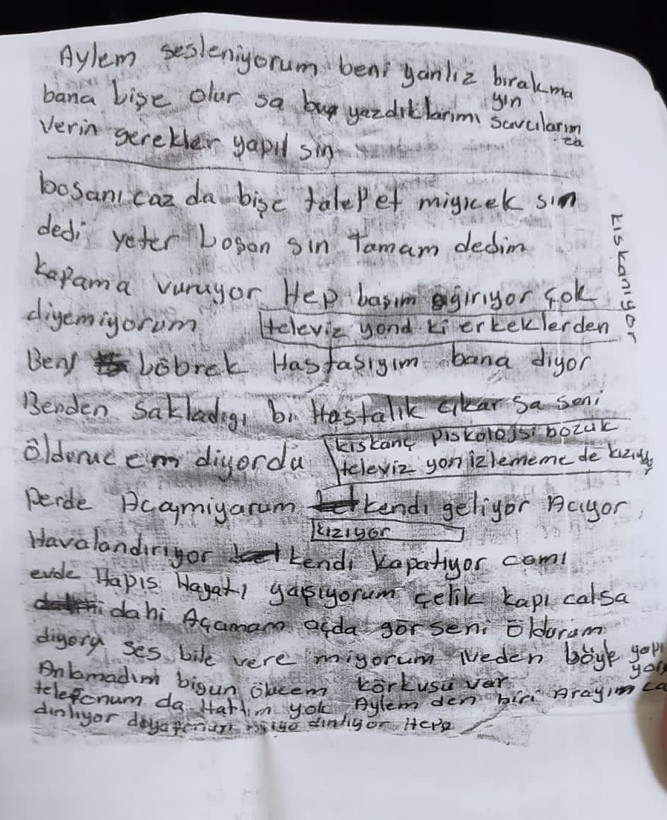 Aylem sesleniyorum beni yanlız bırakma
yın
bana bişe olur sa bu yazdıklarımı savcıların
za
verin gerekler yapıl sin
boşanı caz da bişe talepet miyicek sın
dedi yeter boşan sin tamam dedim
kafama vuruyor Hep başım ağırıyor çok
diyemiyorum televiz yond ki erkeklerden
kıskanıyor
Ben böbrek Hastasıyım bana diyor
Benden sakladıgı bi Hastalık çıkar sa seni
öldürüc em diyordu kıskanç piskolojsi bozuk
televiz yon izlememe de kızıyor
perde Açamıyarum kendi geliyor Acıyor
kızıyor
Havalandırıyor kendi kapatıyor camı
evde Hapis Hayatı yaşıyorum çelik kapı calsa
dahi Açamam açda gör seni öldürüm
diyor ses bile vere miyorum Neden böyle yapı
yor
Anlamadım bigun ölücem körkusu var
telefonum da Hattım yok Aylem den biri Arayım ca
dinliyor dinliyor Hepe